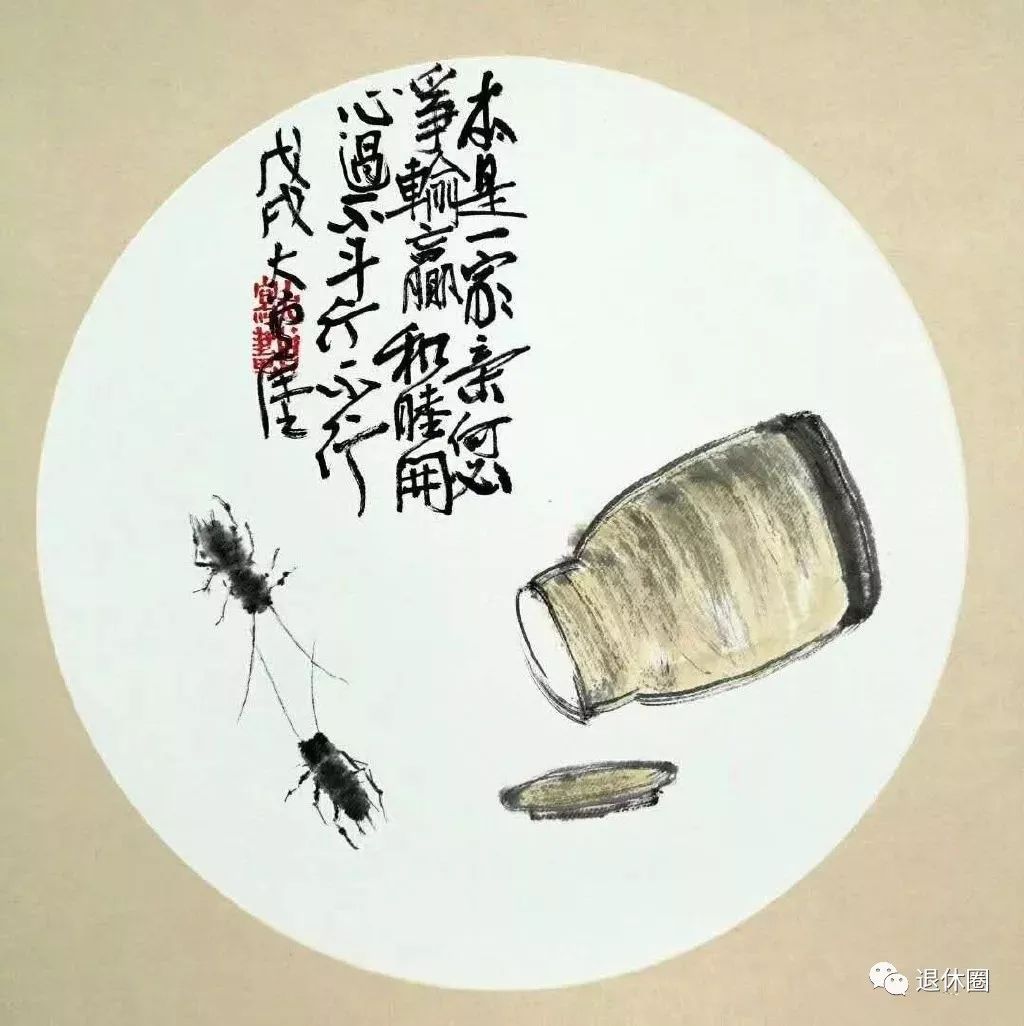 本是一家亲何必
爭輸赢和睦開
心過不斗行不行
戊戌大
退休圈